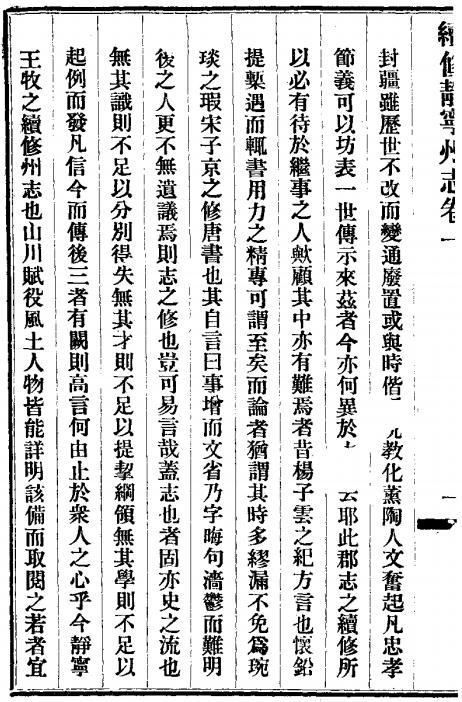 續修靜寧州志卷一
一
封疆雖歷世不改而變通廢置或與時偕
教化薰陶人文奮起凡忠孝
節義可以坊表一世傳示來茲者今亦何異於
云耶此郡志之續修所
以必有待於繼事之人歟顧其中亦有難焉者昔楊子雲之紀方言也懷鉛
提槧遇而輒書用力之精專可謂至矣而論者猶謂其時多繆漏不免爲琬
琰之瑕宋子京之修唐書也其自言曰事增而文省乃字晦句濇鬱而難明
後之人更不無遺議焉則志之修也豈可易言哉蓋志也者固亦史之流也
無其識則不足以分別得失無其才則不足以提挈綱領無其學則不足以
起例而發凡信今而傳後三者有闕則高言何由止於衆人之心乎今靜寧
王牧之續修州志也山川賦役風土人物皆能詳明該備而取閱之若者宜